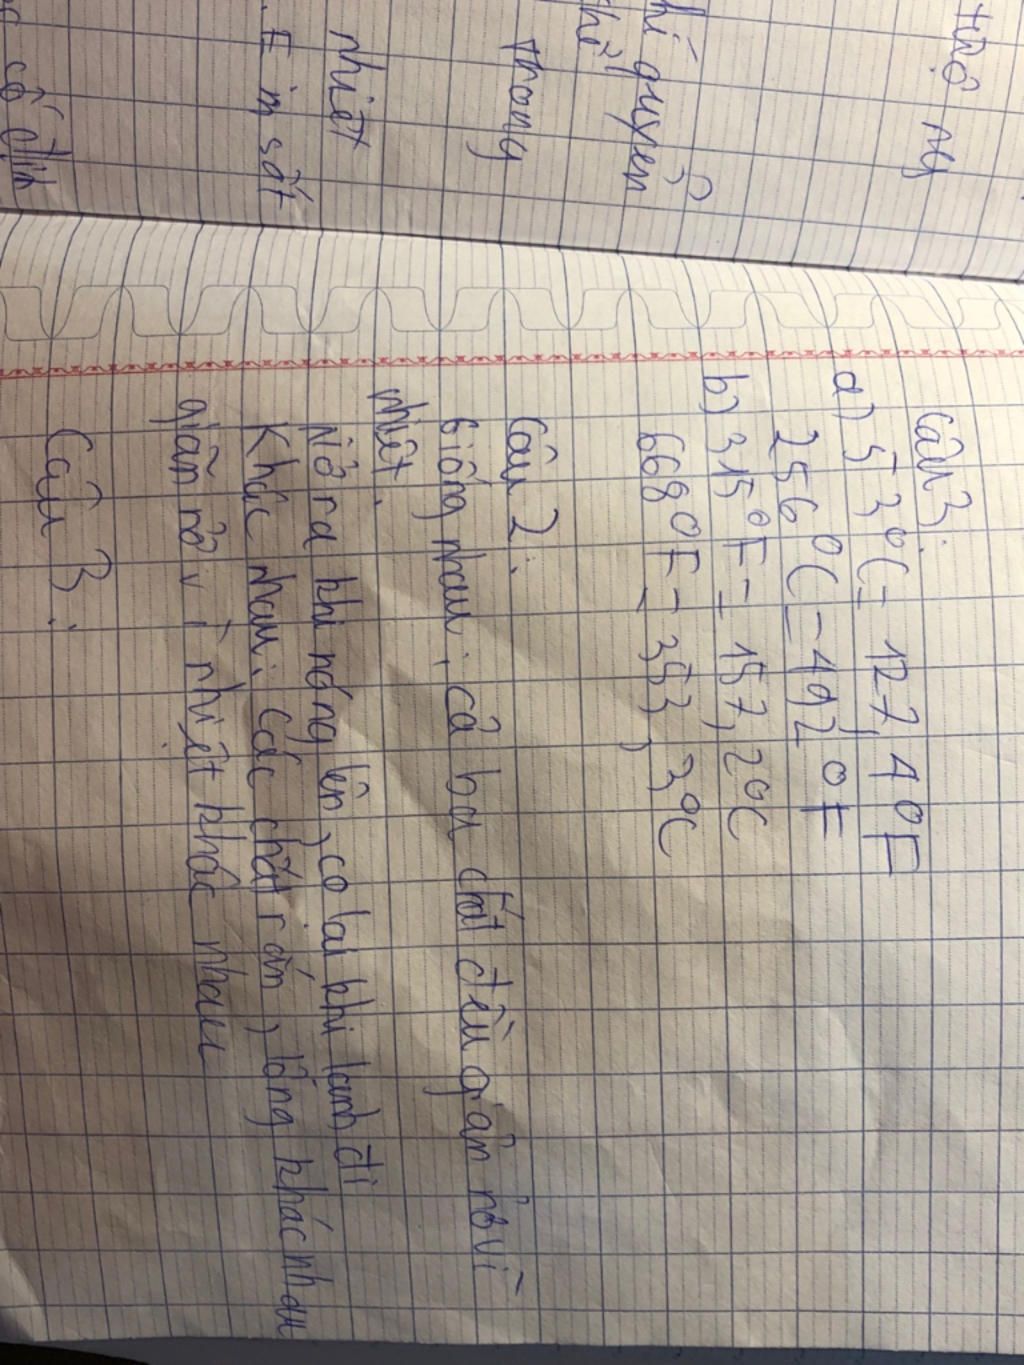 thuộ ng
hí quyển
thể
trong
nhiệt
. E m sắt
cố định
Câu 3:
a) 53°C = 127,4°F
256°C = 492°F
b) 315°F = 157,2°C
668°F = 353,3°C
Câu 2:
Giống nhau: cả ba chất đều giản nở vì
nhiệt.
Nở ra khi nóng lên, co lại khi lạnh đi
Khác nhau: Các chất rắn, lỏng khác nhau
giãn nở vì nhiệt khác nhau
Câu 3: